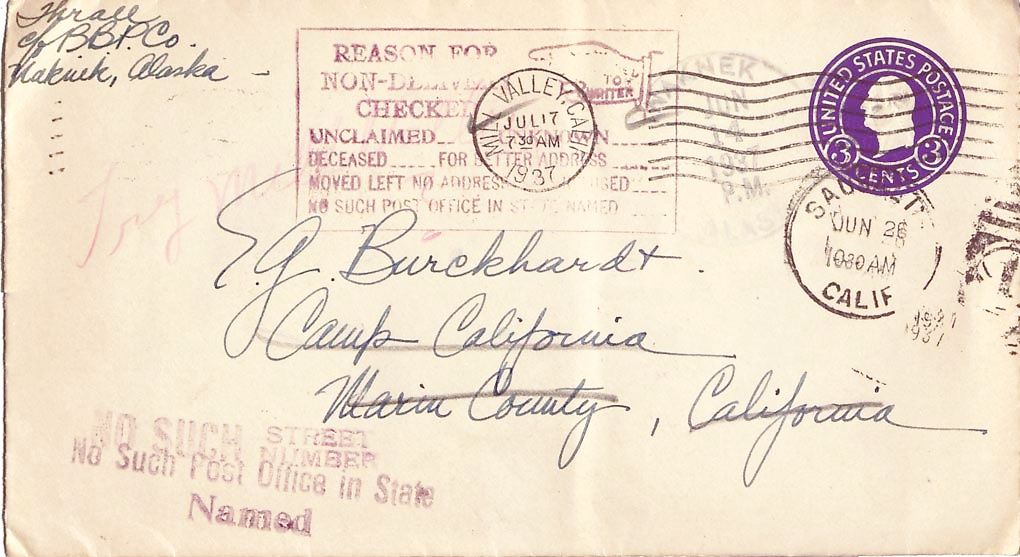 Thrall
c/o B.B.P. Co.
Naknek, Alaska
REASON FOR
NON-DELIVE
CHECKED
UNCLAIMED UNKNOWN
DECEASED FOR BETTER ADDRESS
MOVED LEFT NO ADDRESS
NO SUCH POST OFFICE IN STATE NAMED
TO
WRITER
MILL VALLEY, CALIF
JUL 17
7 30 AM
1937
NAKNEK
JUN
14
1937
P.M.
UNITED STATES POSTAGE
3 CENTS 3
JUN 26
1030 AM
CALIF
1937
1937
Try
E.G. Burckhardt.
Camp California
Marin County, California
NO SUCH STREET
NUMBER
No Such Post Office in State
Named